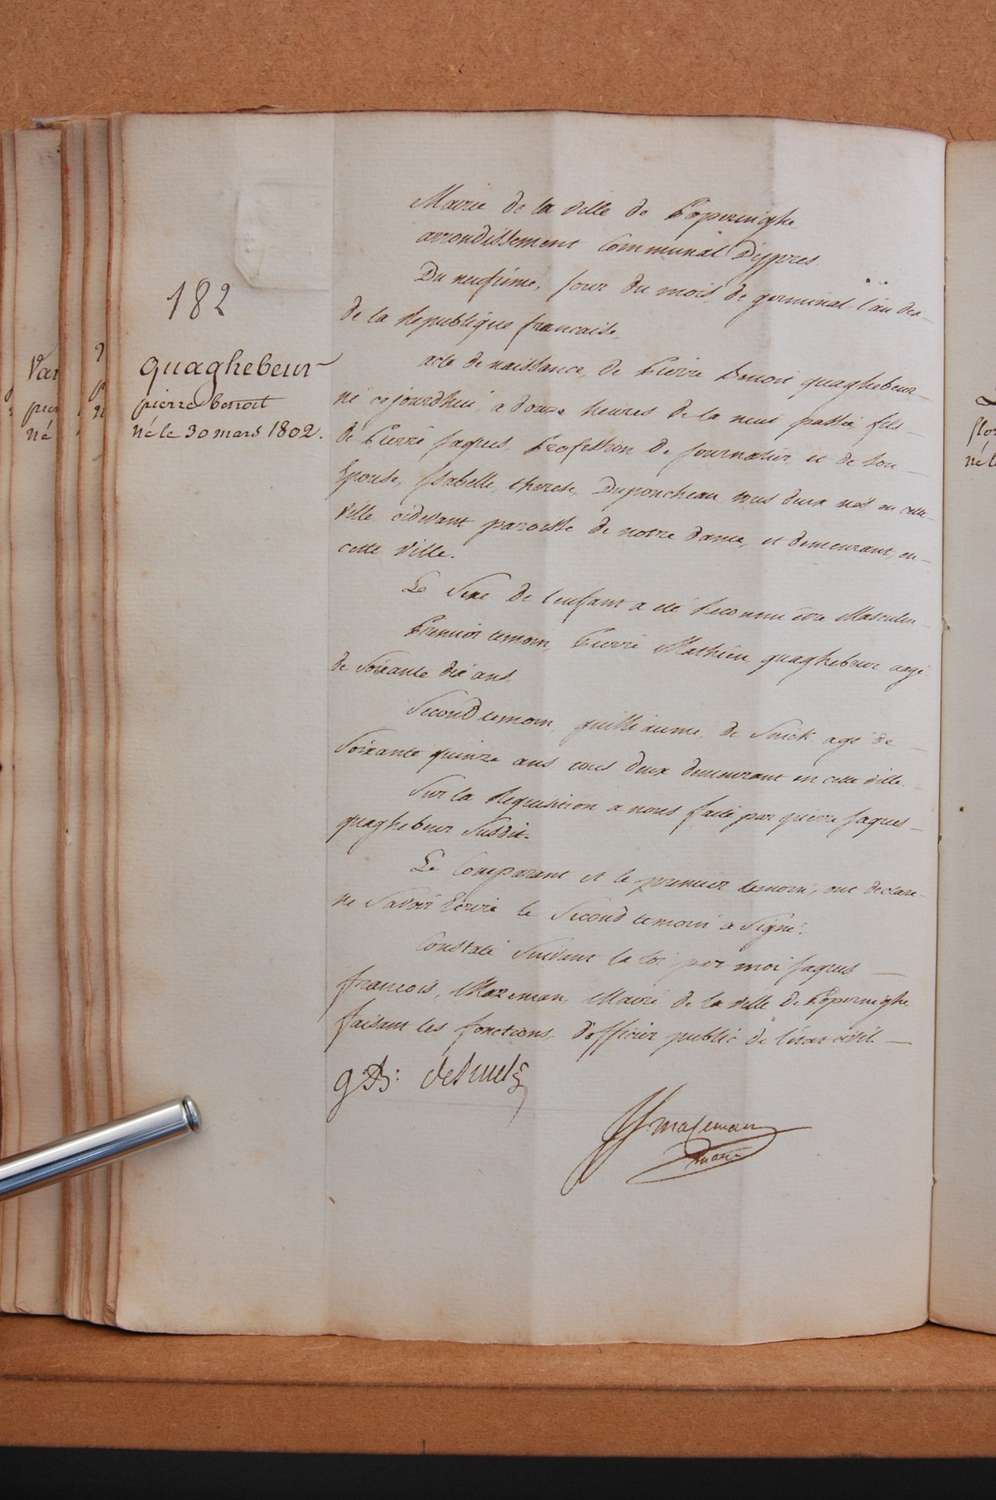 182
quaghebeur
pierre benoit
né le 30 mars 1802.
Mairie de la ville de Poperinghe
arrondissement Communal D'ypres
Du neufième, jour du mois de germinal l'an dix
de la Republique francaise.
acte de naissance, de Pierre Benoit quaghebeur
né cejourdhui, a douze heures de la nuit passée fils
de Pierre jaques, Profession de journalier, et de son
Epouse, Isabelle, therese, Duponcheau tous deux nés en cette
ville cidevant paroisse de notre dame, et demeurant, en
cette ville.
Le Sexe de l'enfant a été Reconnu être Masculin
Premier temoin, Pierre Mathieu quaghebeur agé
de Soixante dix ans
Second temoin, guilliaume, de Smidt agé de
Soixante quinze ans tous deux demeurant en cette ville.
Sur la Requisition a nous faite par pierre jaques
quaghebeur Susdit.
Le Comparant et le premier temoin, ont declaré
ne Savoir Ecrire le Second temoin a Signé.
Constaté Suivant la loi par moi jaques
francois, Mazeman, Maire de la ville de Poperinghe
faisant les fonctions, d'officier public de l'état civil
JJ mazeman
maire
Van
né
né le